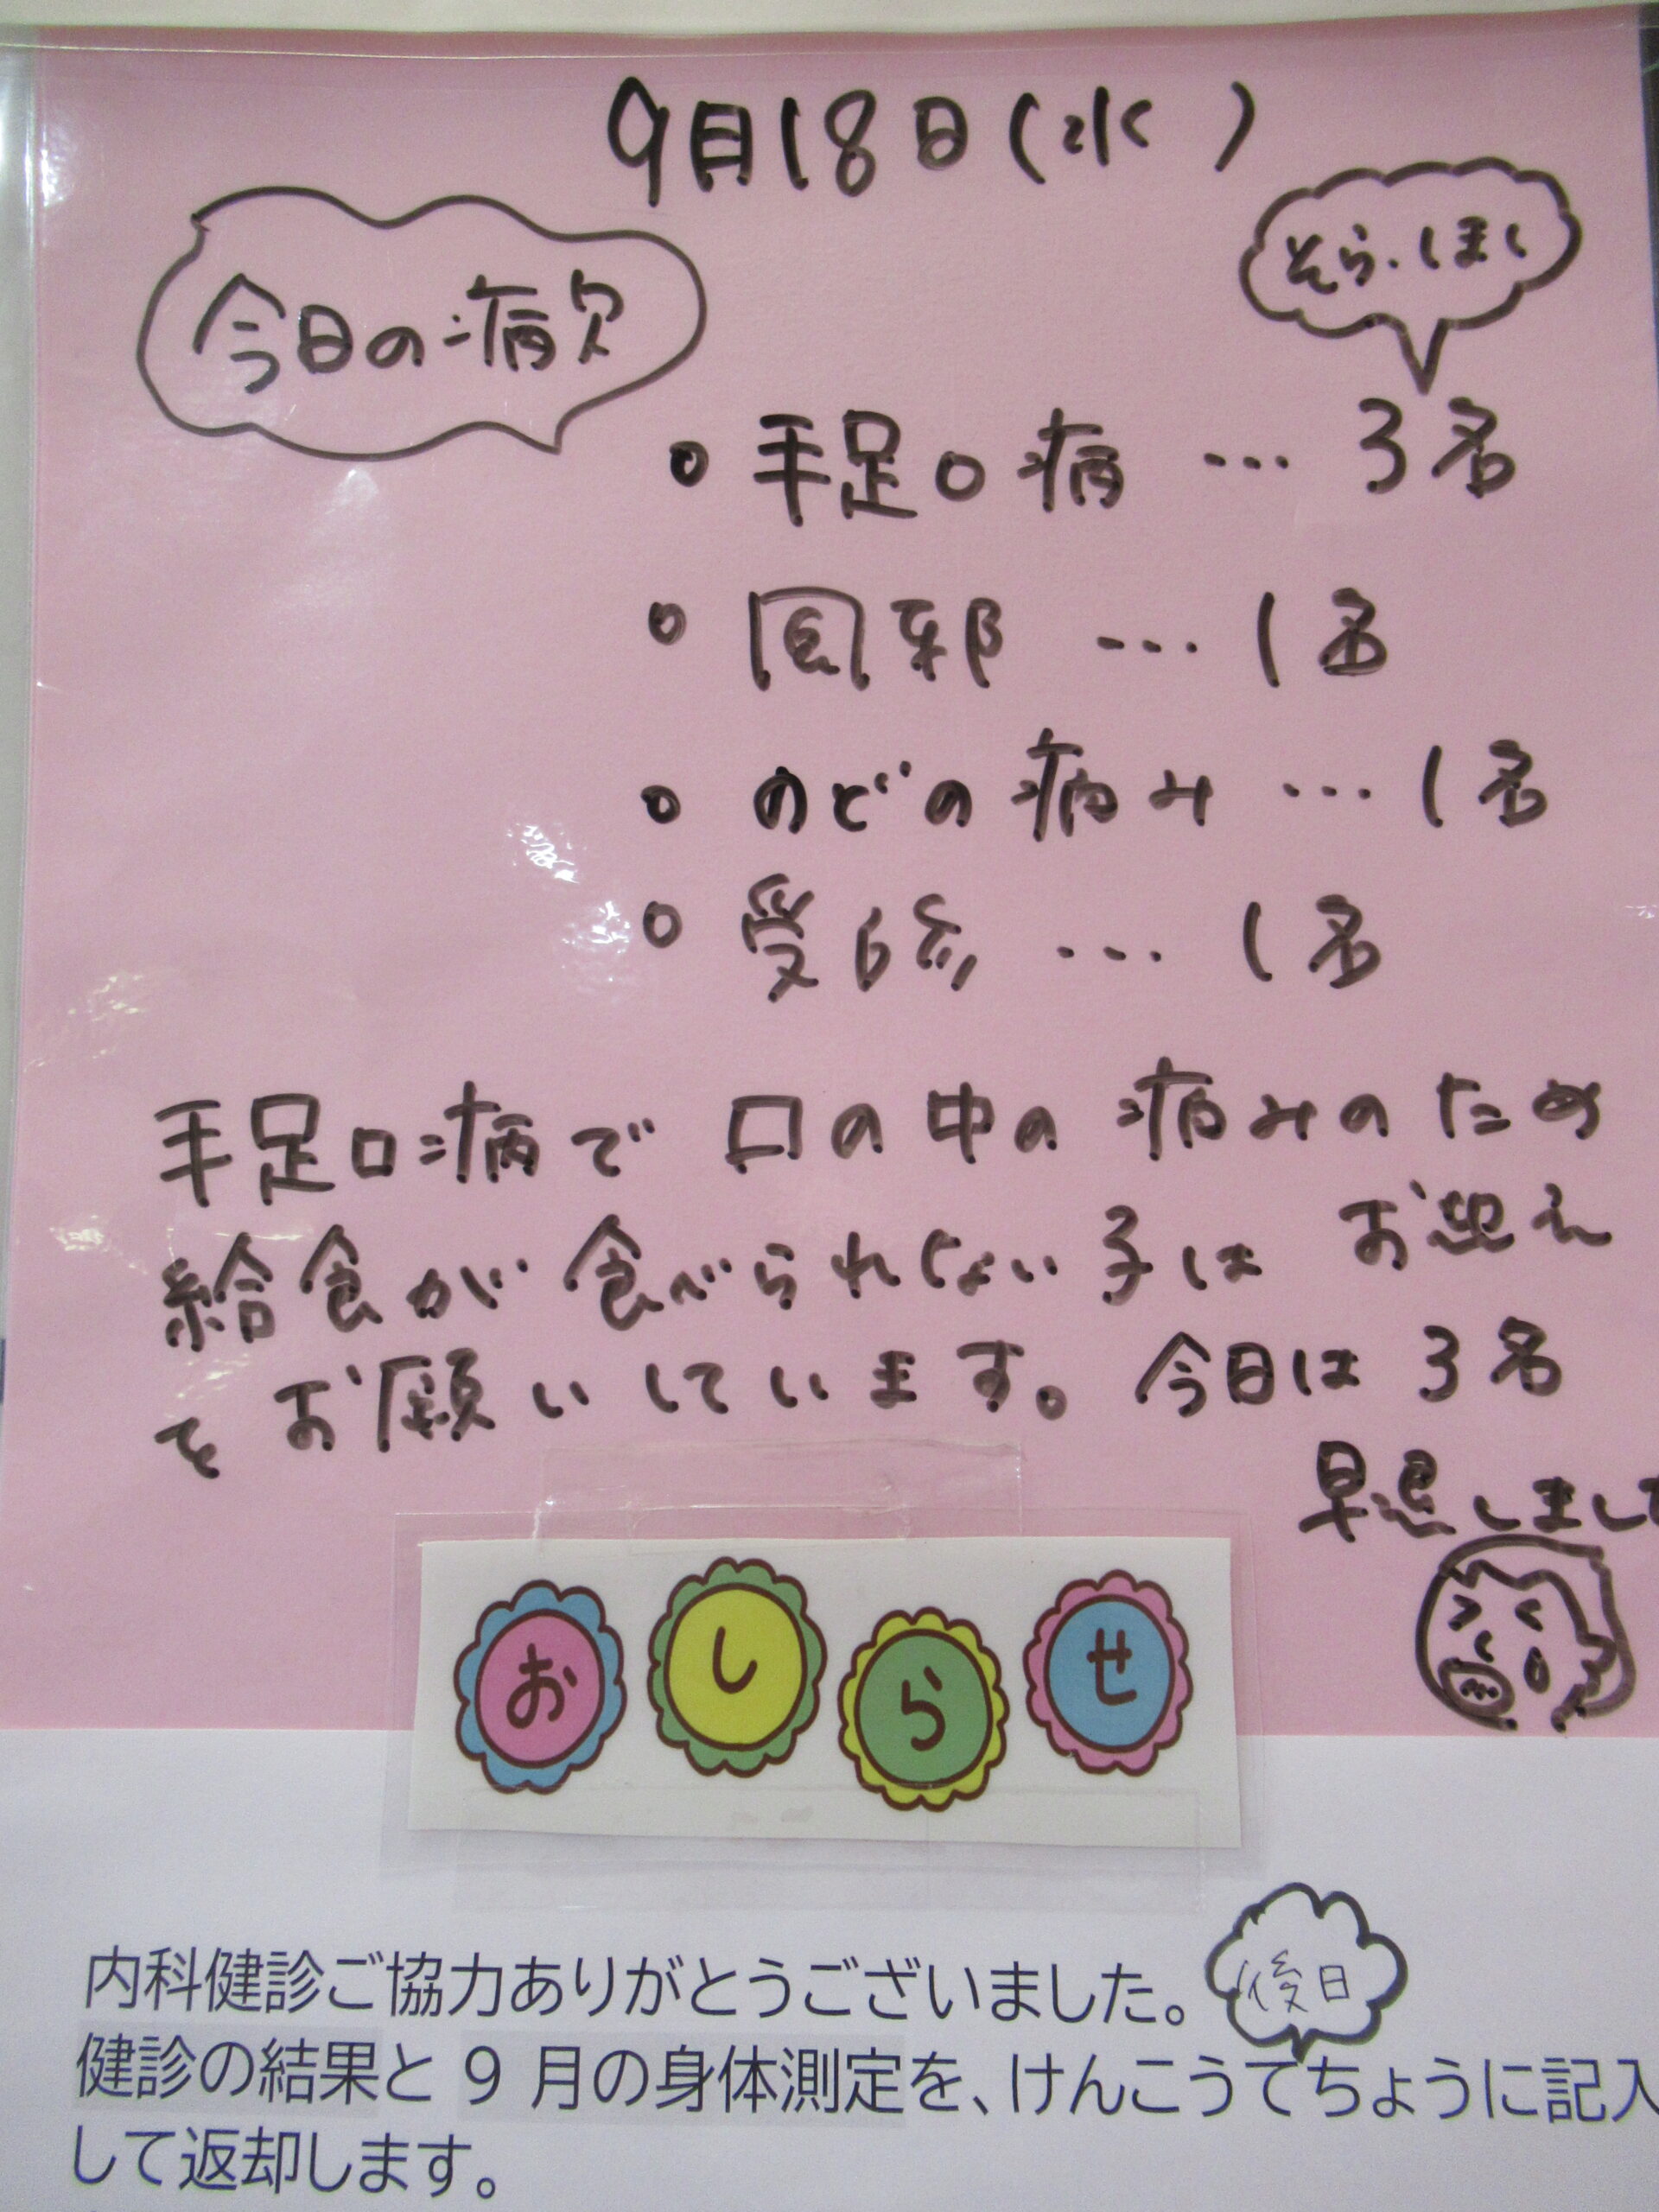 9月18日(水)
今日の病欠
そら・ほし
○ 手足口病 … 3名
○ 風邪 … 1名
○ のどの痛み … 1名
○ 受診 … 1名
手足口病で 口の中の 痛みのため
給食が 食べられない子は お迎え
を お願いしています。今日は 3名
早退しまし
おしらせ
内科健診ご協力ありがとうございました。
後日
健診の結果と 9 月の身体測定を、けんこうてちょうに記入
して返却します。